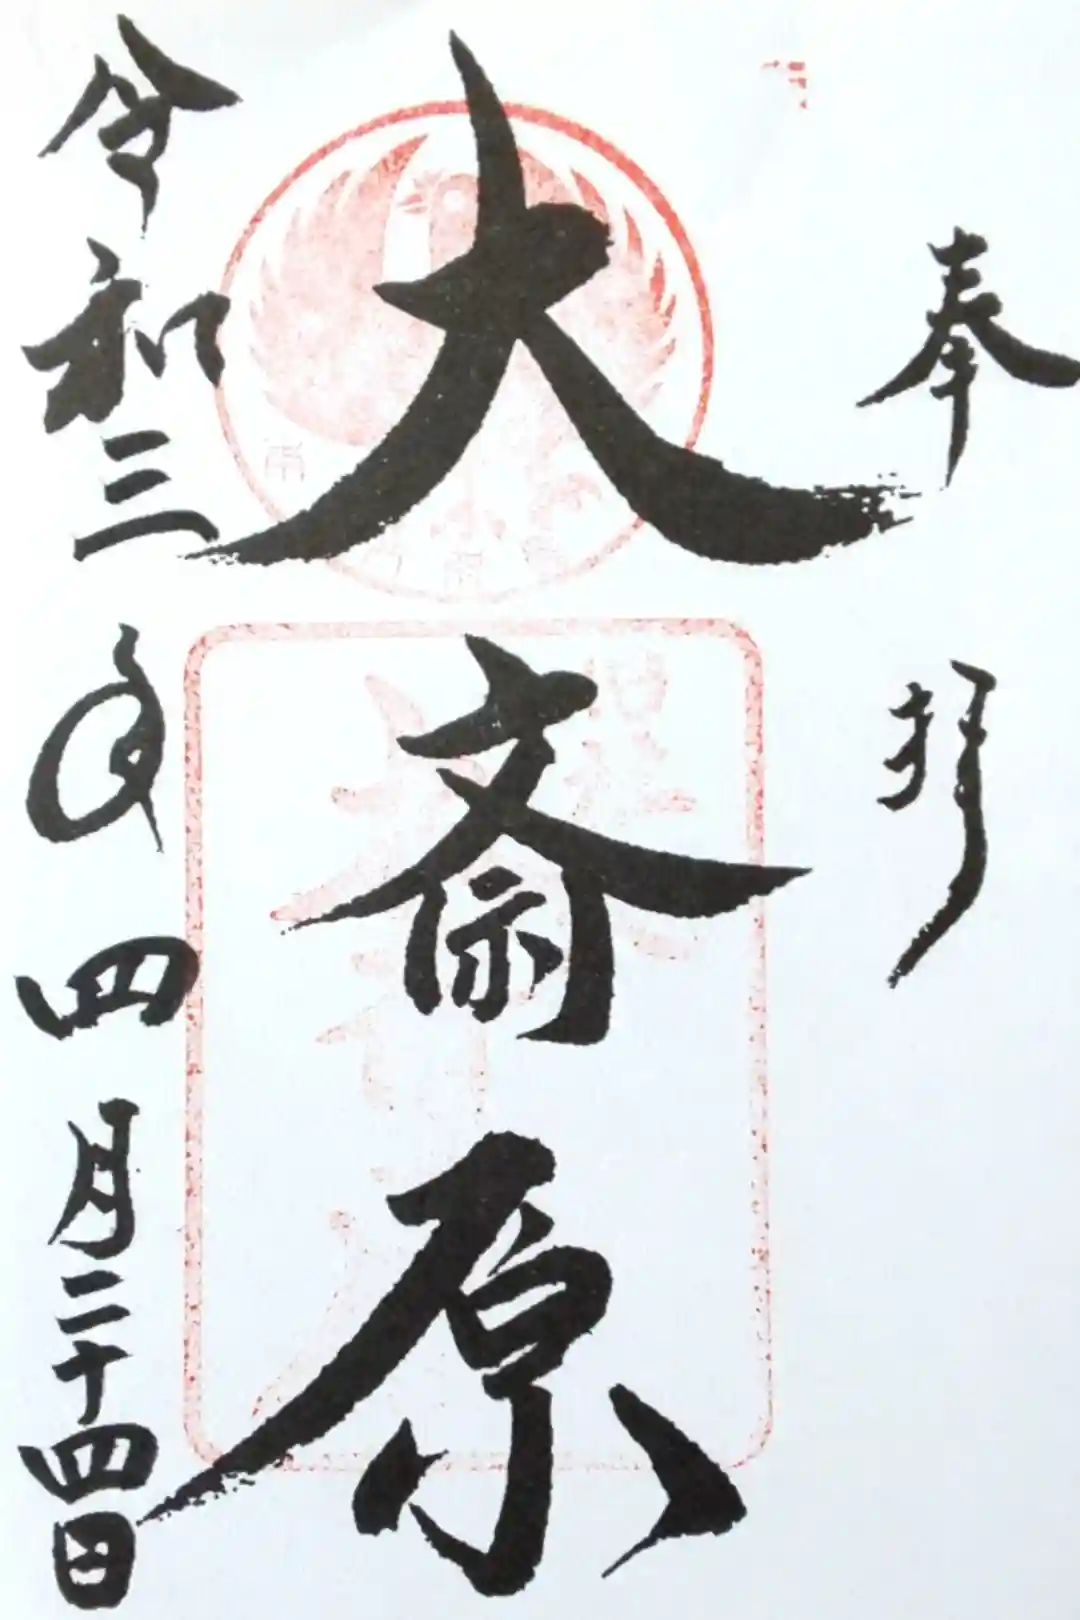 奉拝
大斎原
令和三年四月二十四日